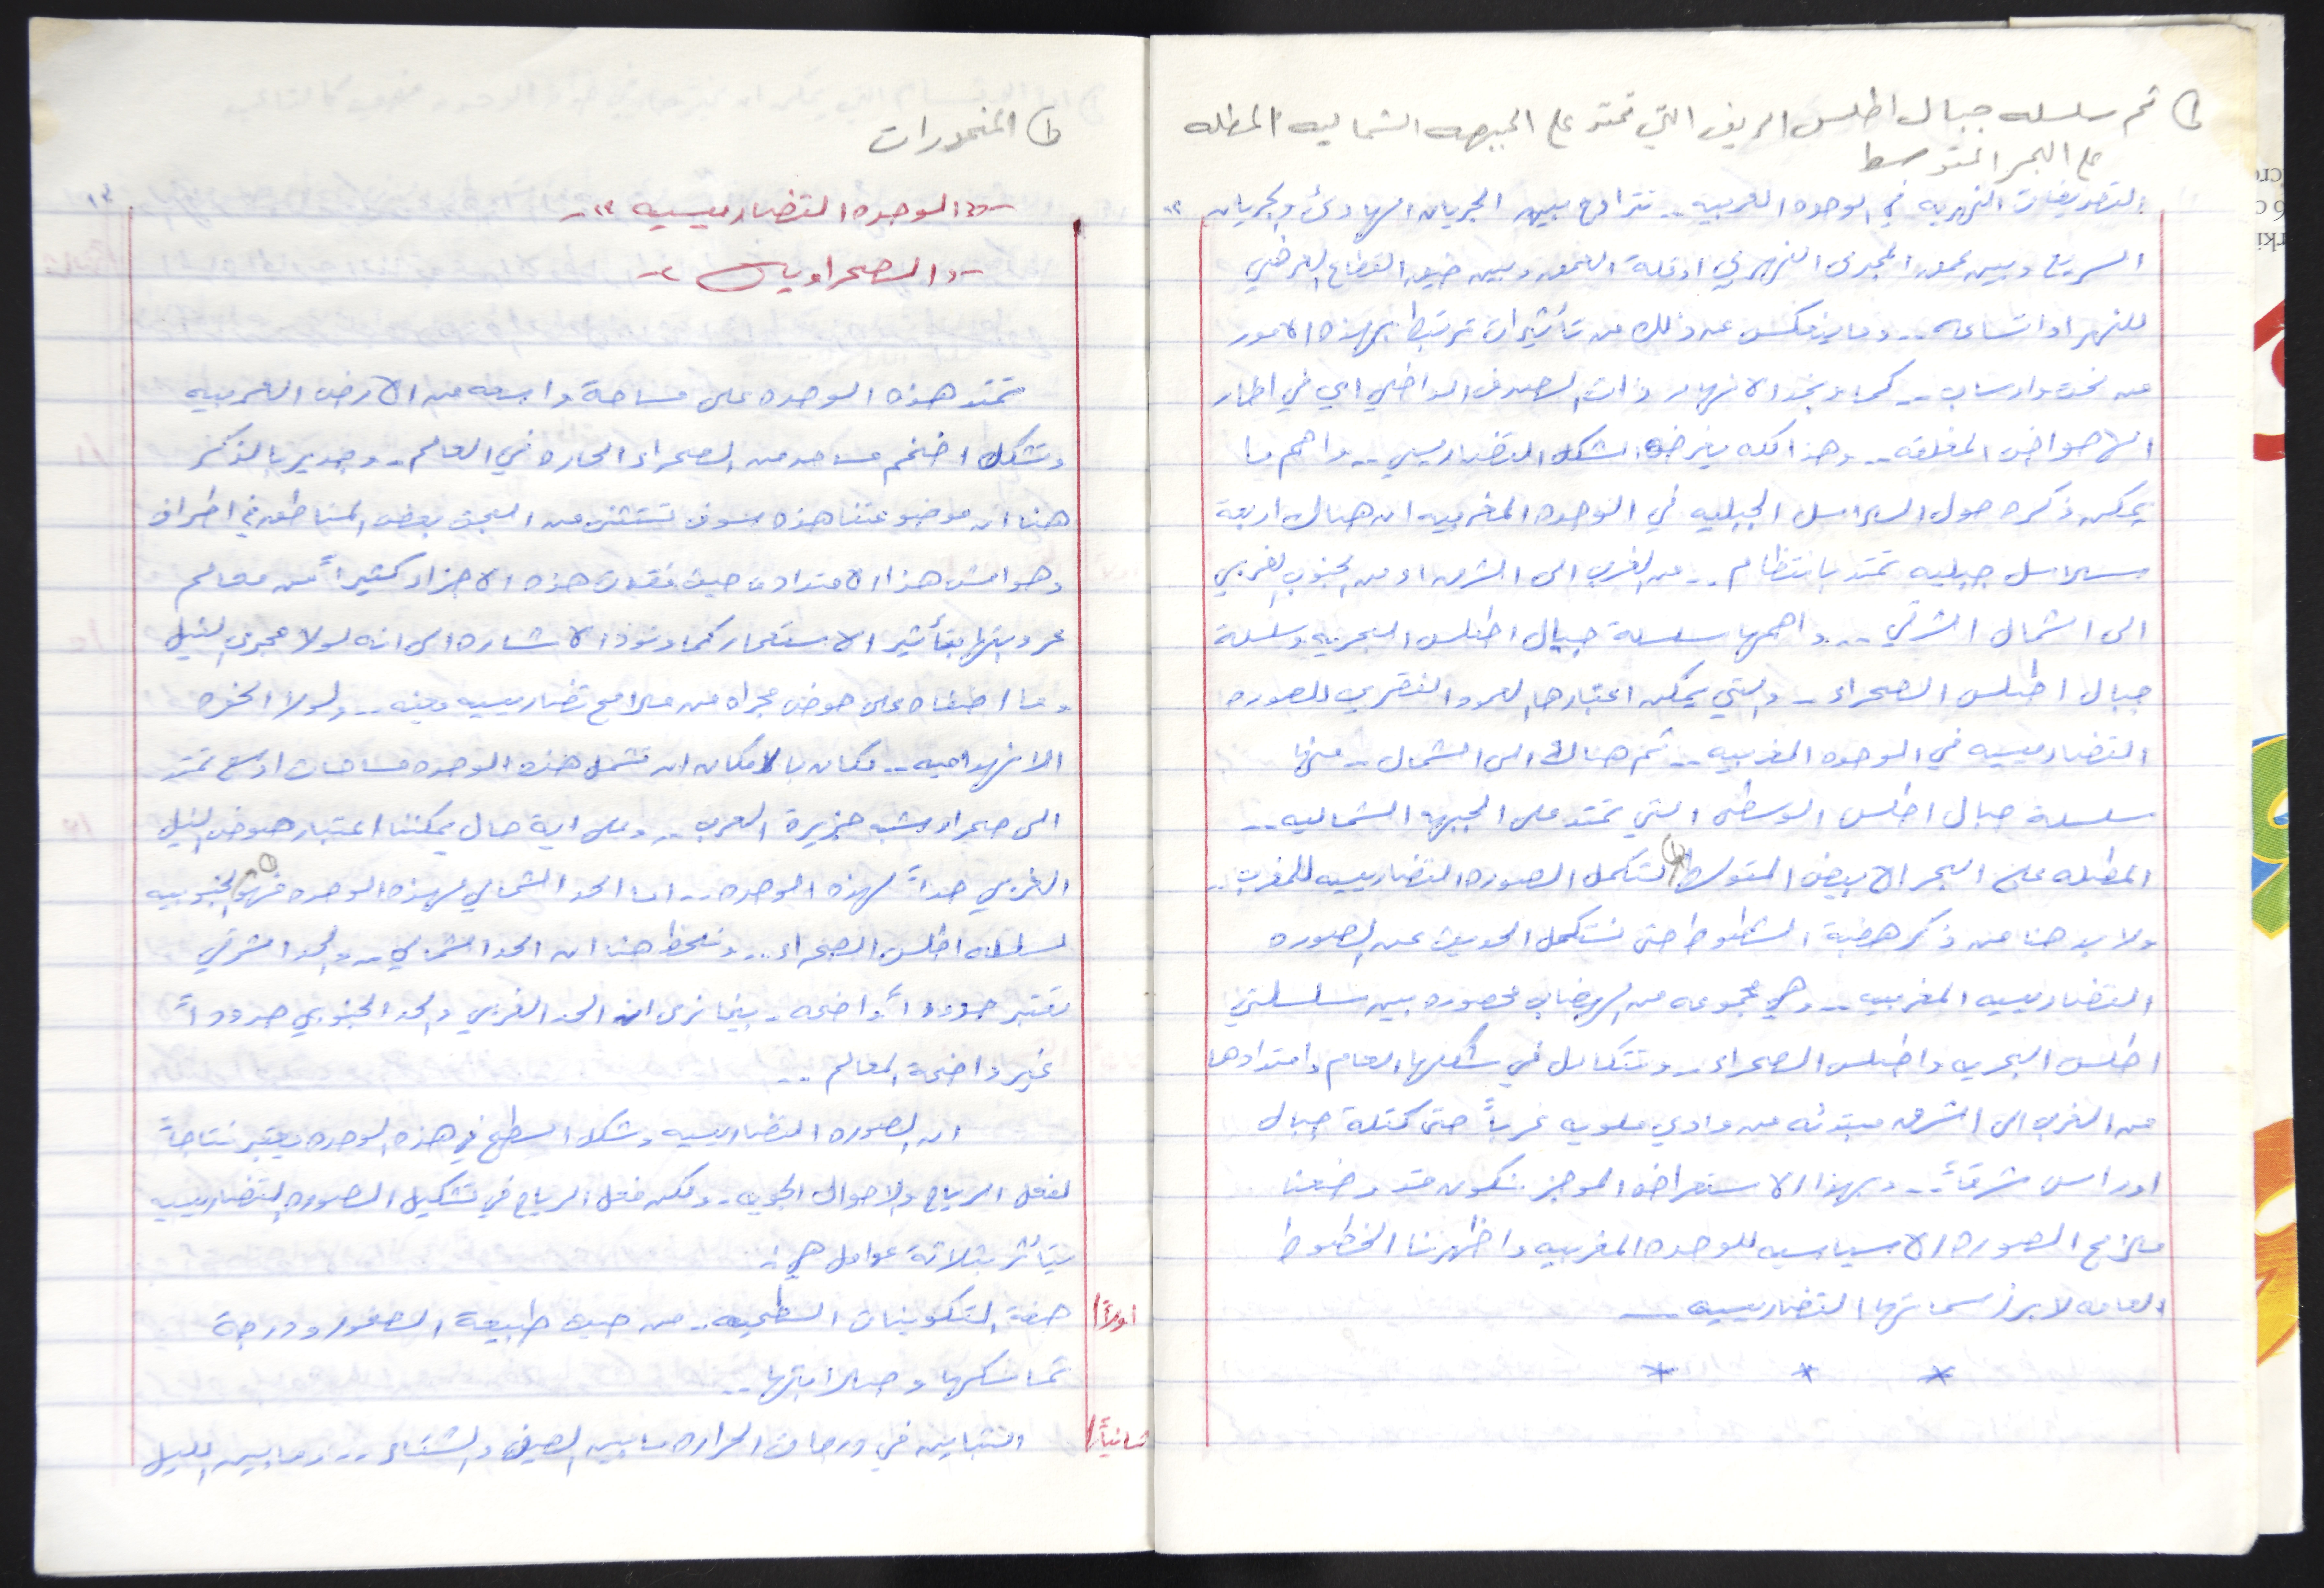 ١) ثم سلسله جبال اطلس الريف التي تمتد على الجبهه الشماليه المطله
على البحر المتوسط
التعريفات النهريه في الوحده العربيه -- تتراوح بين الجريان الهادئ والجريان
السريع وبين عمق المجرى النهري او قلة العمق وبين ضيق القطاع العرضي
للنهر او اتساعه -- وما ينعكس عن ذلك من تأثيرات ترتبط بهذه الامور
من نحت وارساب -- كما ونجد الانهار ذات الصرف الداخلي اي في اطار
الاحواض المغلقه -- وهذا كله يفرضه الشكل التضاريسي -- واهم ما
يمكن ذكره حول السلاسل الجبليه في الوحده المغربيه ان هناك اربعة
سلاسل جبليه تمتد بانتظام -- من الغرب الى الشرق او من الجنوب الغربي
الى الشمال الشرقي -- واهمها سلسلة جبال اطلس البحريه وسلسلة
جبال اطلس الصحراء -- والتي يمكن اعتبارها العمود الفقري للصوره
التضاريسيه في الوحده المغربيه -- ثم هناك الى الشمال -- منها
سلسلة جبال اطلس الوسطى التي تمتد على الجبهه الشماليه --
المطله على البحر الابيض المتوسط ١) لتكمل الصوره التضاريسيه للمغرب --
ولا بد هنا من ذكر هضبة الشطوط حتى نستكمل الحديث عن الصوره
التضاريسيه المغربيه -- وهي مجموعه من الهضاب محصوره بين سلسلتي
اطلس البحريه واطلس الصحراء -- وتتكامل في شكلها العام وامتدادها
من الغرب الى الشرق مبتدئه من وادي ملويه غرباً حتى كتلة جبال
اوراس شرقاً -- وبهذا الاستعراض الموجز نكون قد وضعنا
ملامح الصوره الاساسيه للوحده المغربيه واظهرنا الخطوط
العامه لابرز سماتها التضاريسيه --
* * *
١) المنحدرات
١٣
-" الوحده التضاريسيه "-
-" الصحراويه "-
تمتد هذه الوحده على مساحة واسعه من الارض العربيه
وتشكل اضخم مساحه من الصحراء الحاره في العالم -- وجدير بالذكر
هنا ان موضوعتنا هذه سوف تستثني من البحث بعض المناطق في اطراف
وهوامش هذا الامتداد حيث فقدت هذه الاجزاء كثيراً من معالم
عروبتها بتأثير الاستعمار كما ونود الاشاره الى انه لولا مجرى النيل
وما اضفاه على حوض مجراه من ملامح تضاريسيه معينه -- ولولا الحفره
الانهداميه -- لكان بالامكان ان تشمل هذه الوحده مساحات اوسع تمتد
الى صحراء شبه جزيرة العرب -- وعلى اية حال يمكننا اعتبار حوض النيل
الغربي حداً لهذه الوحده -- اما الحد الشمالي لهذه الوحده فهو ١) الجنوبيه
لسلسلة اطلس الصحراء -- ونلاحظ هنا ان الحد الشمالي -- والحد الشرقي
تعتبر حدوداً واضحه - بينما نرى ان الحد الغربي والحد الجنوبي حدوداً
غير واضحة المعالم --
ان الصوره التضاريسيه وشكل السطح في هذه الوحده يعتبر نتاجاً
لفعل الرياح والاحوال الجويه - ولكن فعل الرياح في تشكيل الصوره التضاريسيه
يتأثر بثلاثة عوامل هي :-
اولاً/ صفة التكوينات السطحيه -- من حيث طبيعة الصخور ودرجة
تماسكها وصلابتها --
ثانياً/ التباين في درجات الحراره ما بين الصيف والشتاء -- وما بين الليل